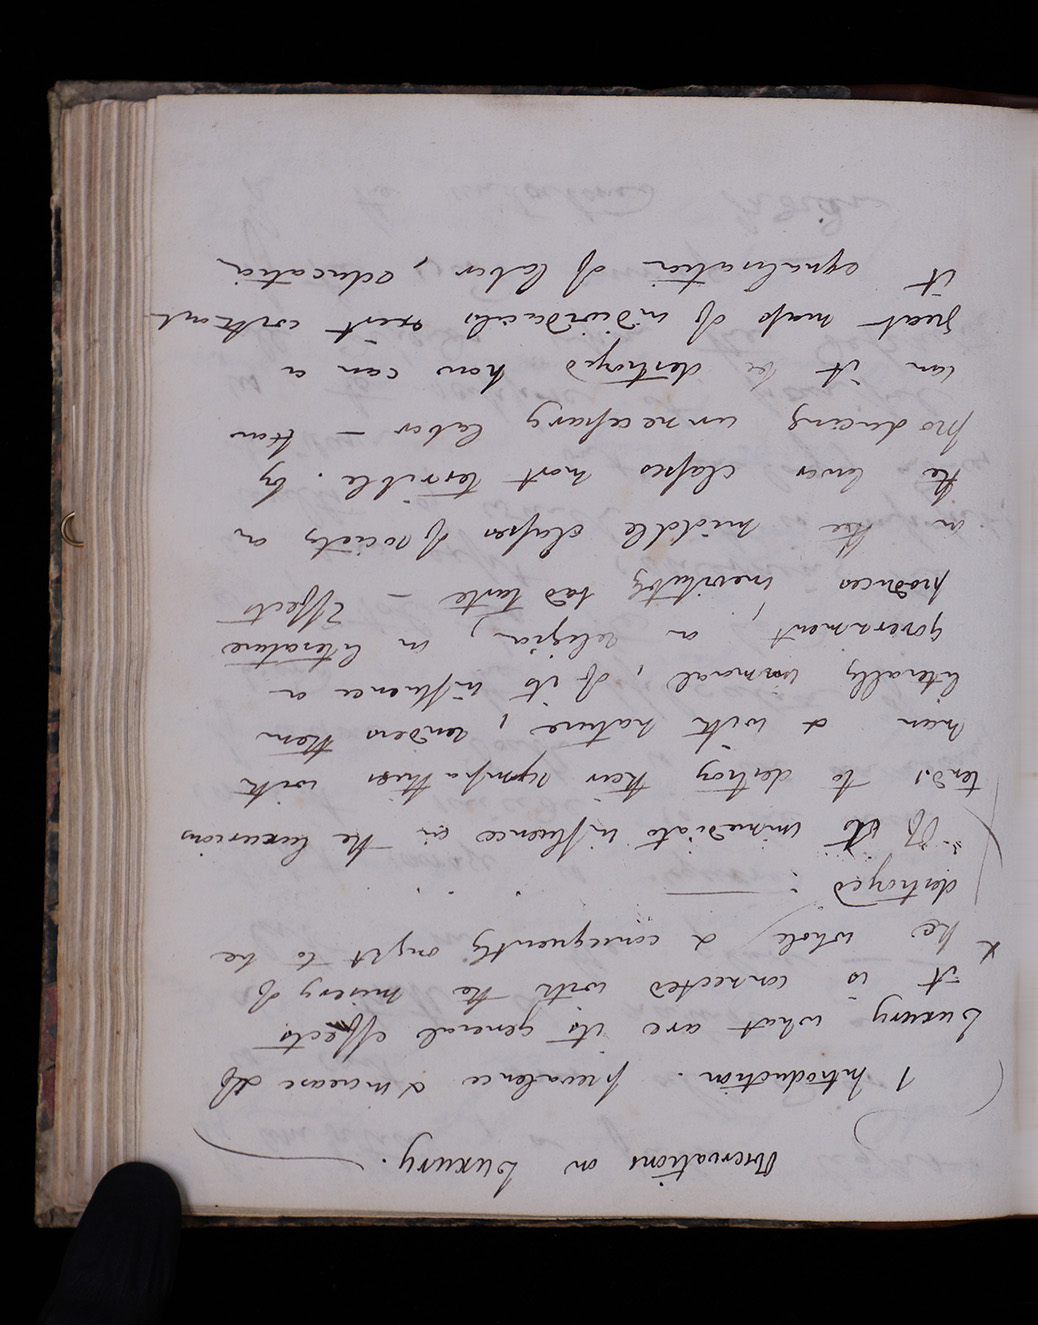 Observations on Luxury.
1 Introduction. prevalence & increase of
Luxury what are its general effects
it is connected with the misery of
the whole & consequently ought to be
destroyed
Of its immediate influence on the luxurious
tends to destroy their sympathies with
man & with nature, renders them
literally immoral, of its influence on
government, on religion, on literature
produces inevitably bad taste — Effects
on the middle classes of society on
the lower classes most terrible. by
producing unnecessary labor — how
can it be destroyed how can a
great mass of individuals exist without
it equalisation of labor, education